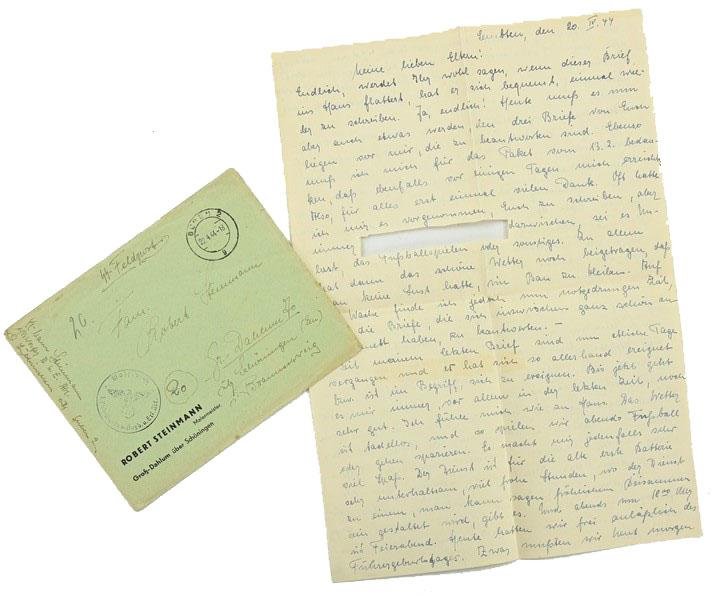 den 20. IV. 44
Meine lieben Eltern!
Endlich, werdet Ihr wohl sagen, wenn dieser Brief
ins Haus flattert, hat er sich bequemt, einmal wie-
der zu schreiben. Ja, endlich! Heute muß es nun
aber auch etwas werden, den drei Briefe von Euch
liegen vor mir, die zu beantworten sind. Ebenso
muß ich mich für das Paket vom 13.2. bedan-
ken, daß ebenfalls vor einigen Tagen mich erreicht
Also, für alles erst einmal vielen Dank. Oft hatte
ich mir es vorgenommen, Euch zu schreiben, aber
immer dazwischen, sei es Un-
lust, das Fußballspielen oder sonstiges. Zu allem
hat dann das schöne Wetter noch beigetragen, daß
keine Lust hatte, im Bau zu bleiben. Auf
Wache finde ich jedoch nun notgedrungen Zeit,
die Briefe, die sich inzwischen ganz schön an
haben, zu beantworten. –
Seit meinem letzten Brief sind nun etliche Tage
vergangen und es hat sich so allerhand ereignet
bzw. ist im Begriff, sich zu ereignen. Bis jetzt geht
es mir immer, vor allem in der letzten Zeit, noch
sehr gut. Ich fühle mich wie zu Haus. Das Wetter
ist tadellos, und so spielen wir abends Fußball
oder gehen spazieren. Es macht mir jedenfalls sehr
viel Spaß. Der Dienst ist für die alte erste Batterie
sehr unterhaltsam, viel frohe Stunden, wo der Dienst
zu einem, man kann sagen fröhlichen Beisammen
sein gestaltet wird, gibt es. Und abends um 18.00 Uhr
ist Feierabend. Heute hatten wir frei anläßlich des
Führergeburtstages. Zwar mußten wir heut morgen
SS-Feldpost
22.4.44-18
20.
Fam.
Robert Steinmann
Gr. Dahlum 70
über Schöningen
Braunschweig
ROBERT STEINMANN
Malermeister
Groß-Dahlum über Schöningen